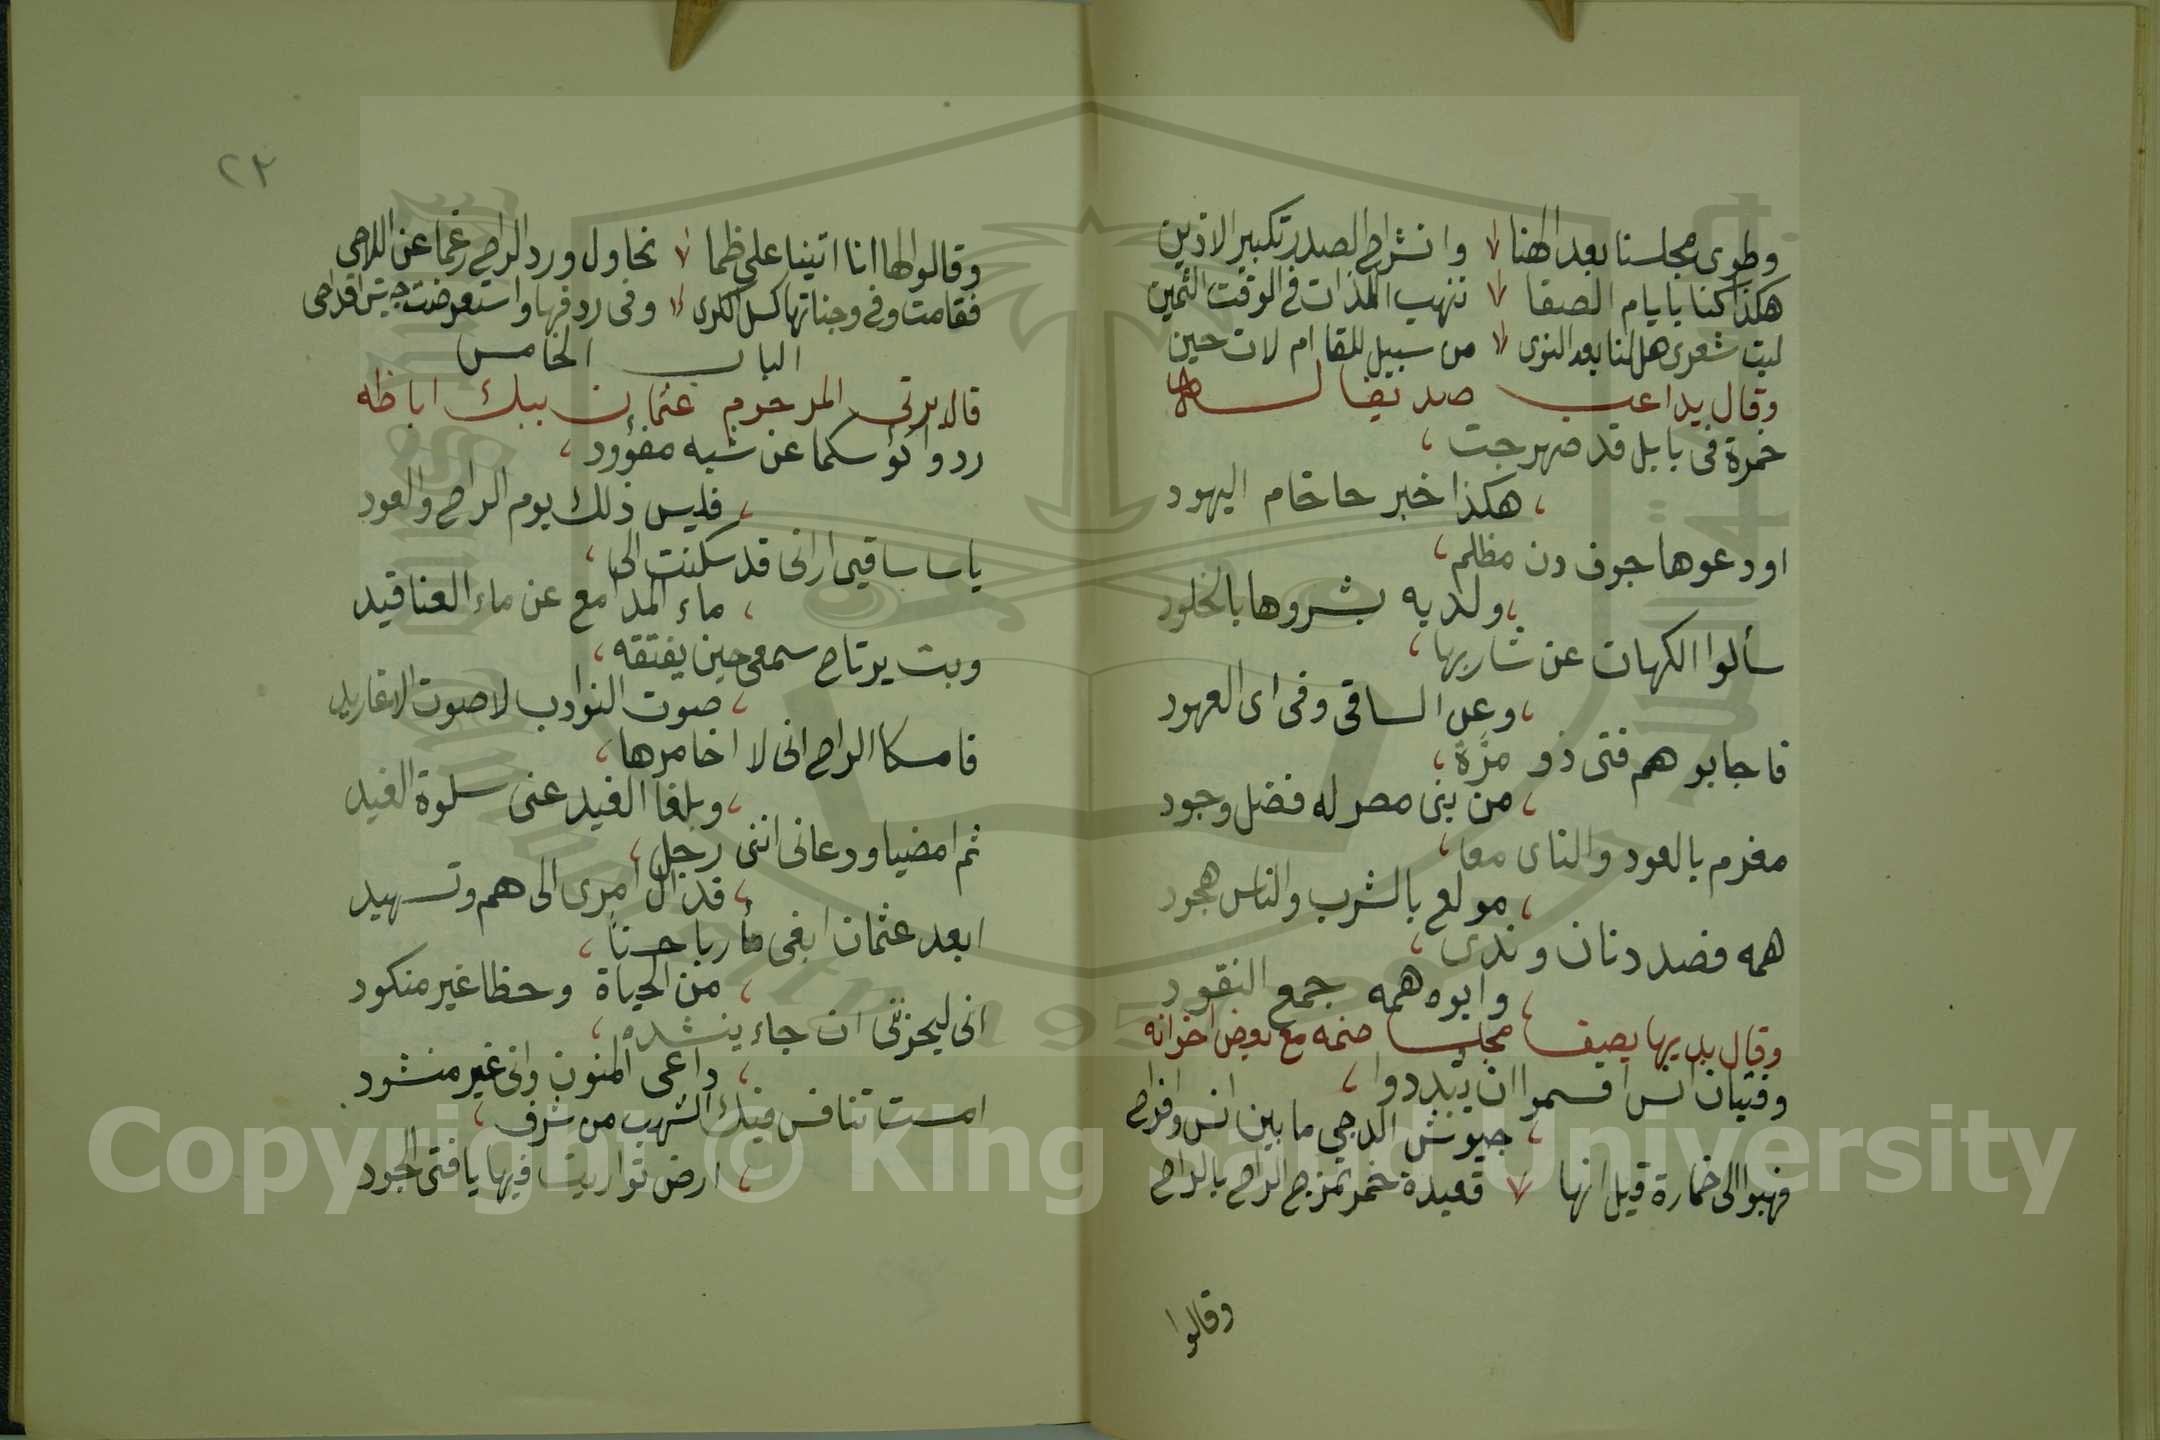 وطوى مجلسنا بعد الهنا وانشراح الصدر تكبير الاذين
هكذا كنا بايام الصفا ننهب اللذات فى الوقت الثمين
ليت شعرى هل لنا بعد النوى من سبيل للقا ام لات حين
وقال يداعب صديقا له
خمرة فى بابل قد صهرجت ،
، هكذا خبر حاخام اليهود
اودعوها جوف دن مظلم ،
، ولديه بشروها بالخلود
سألوا الكهان عن شاربها ،
، وعن الساقى وفى اى العهود
فاجابوهم فتى ذو مرة ،
، من بنى مصر له فضل وجود
مغرم بالعود والناى معا ،
، مولع بالشرب والناس هجود
همه فصد دنان وندى ،
، وابوه همه جمع النقود
وقال بديرها يصف مجلسا ضمه مع بعض اخوانه
وفتيان انس اقسموا ان يبددوا ،
، جيوش الدجى ما بين انس وافراح
فهبوا الى خمارة قيل انها قعيدة خمر تمزج الراح بالراح
وقالوا
٢٣
وقالوا لها انا اتينا على ظما نحاول ورد الراح رغما عن اللاحى
فقامت وفى وجناتها كسل الكرى وفى ردفها واستعرضت جيش اقداحى
الباب الخامس
قال يرثى المرحوم عثمان بيك اباظه
ردوا كؤسكما عن شبه مفؤود ،
، فليس ذلك يوم الراح والعود
يا ساقيى ارانى قد سكنت الى ،
، ماء المدامع عن ماء العناقيد
وبت يرتاح سمعى حين يفتقه ،
، صوت النوادب لا صوت الاغاريد
فامسكا الراح انى لا اخامرها ،
، وبلغا الغيد عنى سلوة الغيد
ثم امضيا ودعانى اننى رجل ،
، قد آل امرى الى هم وتسهيد
ابعد عثمان ابغى مأربا حسنا ،
، من الحياة وحظا غير منكود
انى ليحزننى ان جاء ينشده ،
، داعى المنون وانى غير منشود
امست تنافس فيك الشهب من شرف ،
، ارض تواريت فيها يا فتى الجود
Copyright © King Saud University